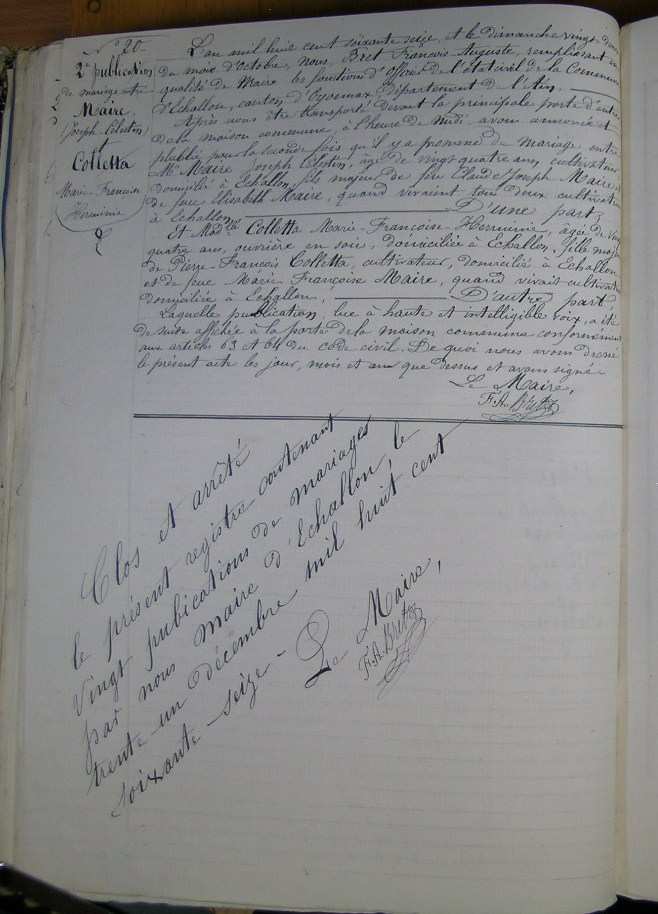 N° 20
2e publication
de mariage entre
Maire
(Joseph Célestin)
et
Colletta
Marie-Françoise
Herminie
L'an mil huit cent soixante seize, et le Dimanche vingt-deux
du mois d'octobre, nous, François-Auguste, remplissant en
qualité de Maire les fonctions d'officier de l'état civil de la Commune
d'Echallon, canton d'Oyonnax, Département de l'Ain.
Après nous être transporté devant la principale porte d'entrée
de la maison commune, à l'heure de midi avons annoncé et
publié pour la seconde fois qu'il y a promesse de mariage entre
Mr Maire Joseph Célestin, âgé de vingt quatre ans, cultivateur,
domicilié à Echallon, fils majeur de feu Claude Joseph Maire et
de feue Elisabeth Maire, quand vivaient tous deux cultivateurs
à Echallon. D'une part,
Et Madelle Colletta Marie-Françoise-Herminie, âgée de vingt
quatre ans, ouvrière en soie, domiciliée à Echallon, fille majeure
de Pierre-François Colletta, cultivateur, domicilié à Echallon,
et de feue Marie-Françoise Maire, quand vivait cultivatrice
domiciliée à Echallon, D'autre part.
Laquelle publication, lue à haute et intelligible voix, a été
de suite affichée à la porte de la maison commune conformément
aux articles 63 et 64 du code civil. De quoi nous avons dressé
le présent acte les jour, mois et an que dessus et avons signé
Le Maire,
Clos et arrêté
le présent registre contenant
vingt publications de mariages
par nous Maire d'Echallon le
trente-un décembre mil huit cent
soixante-seize -
Le Maire,